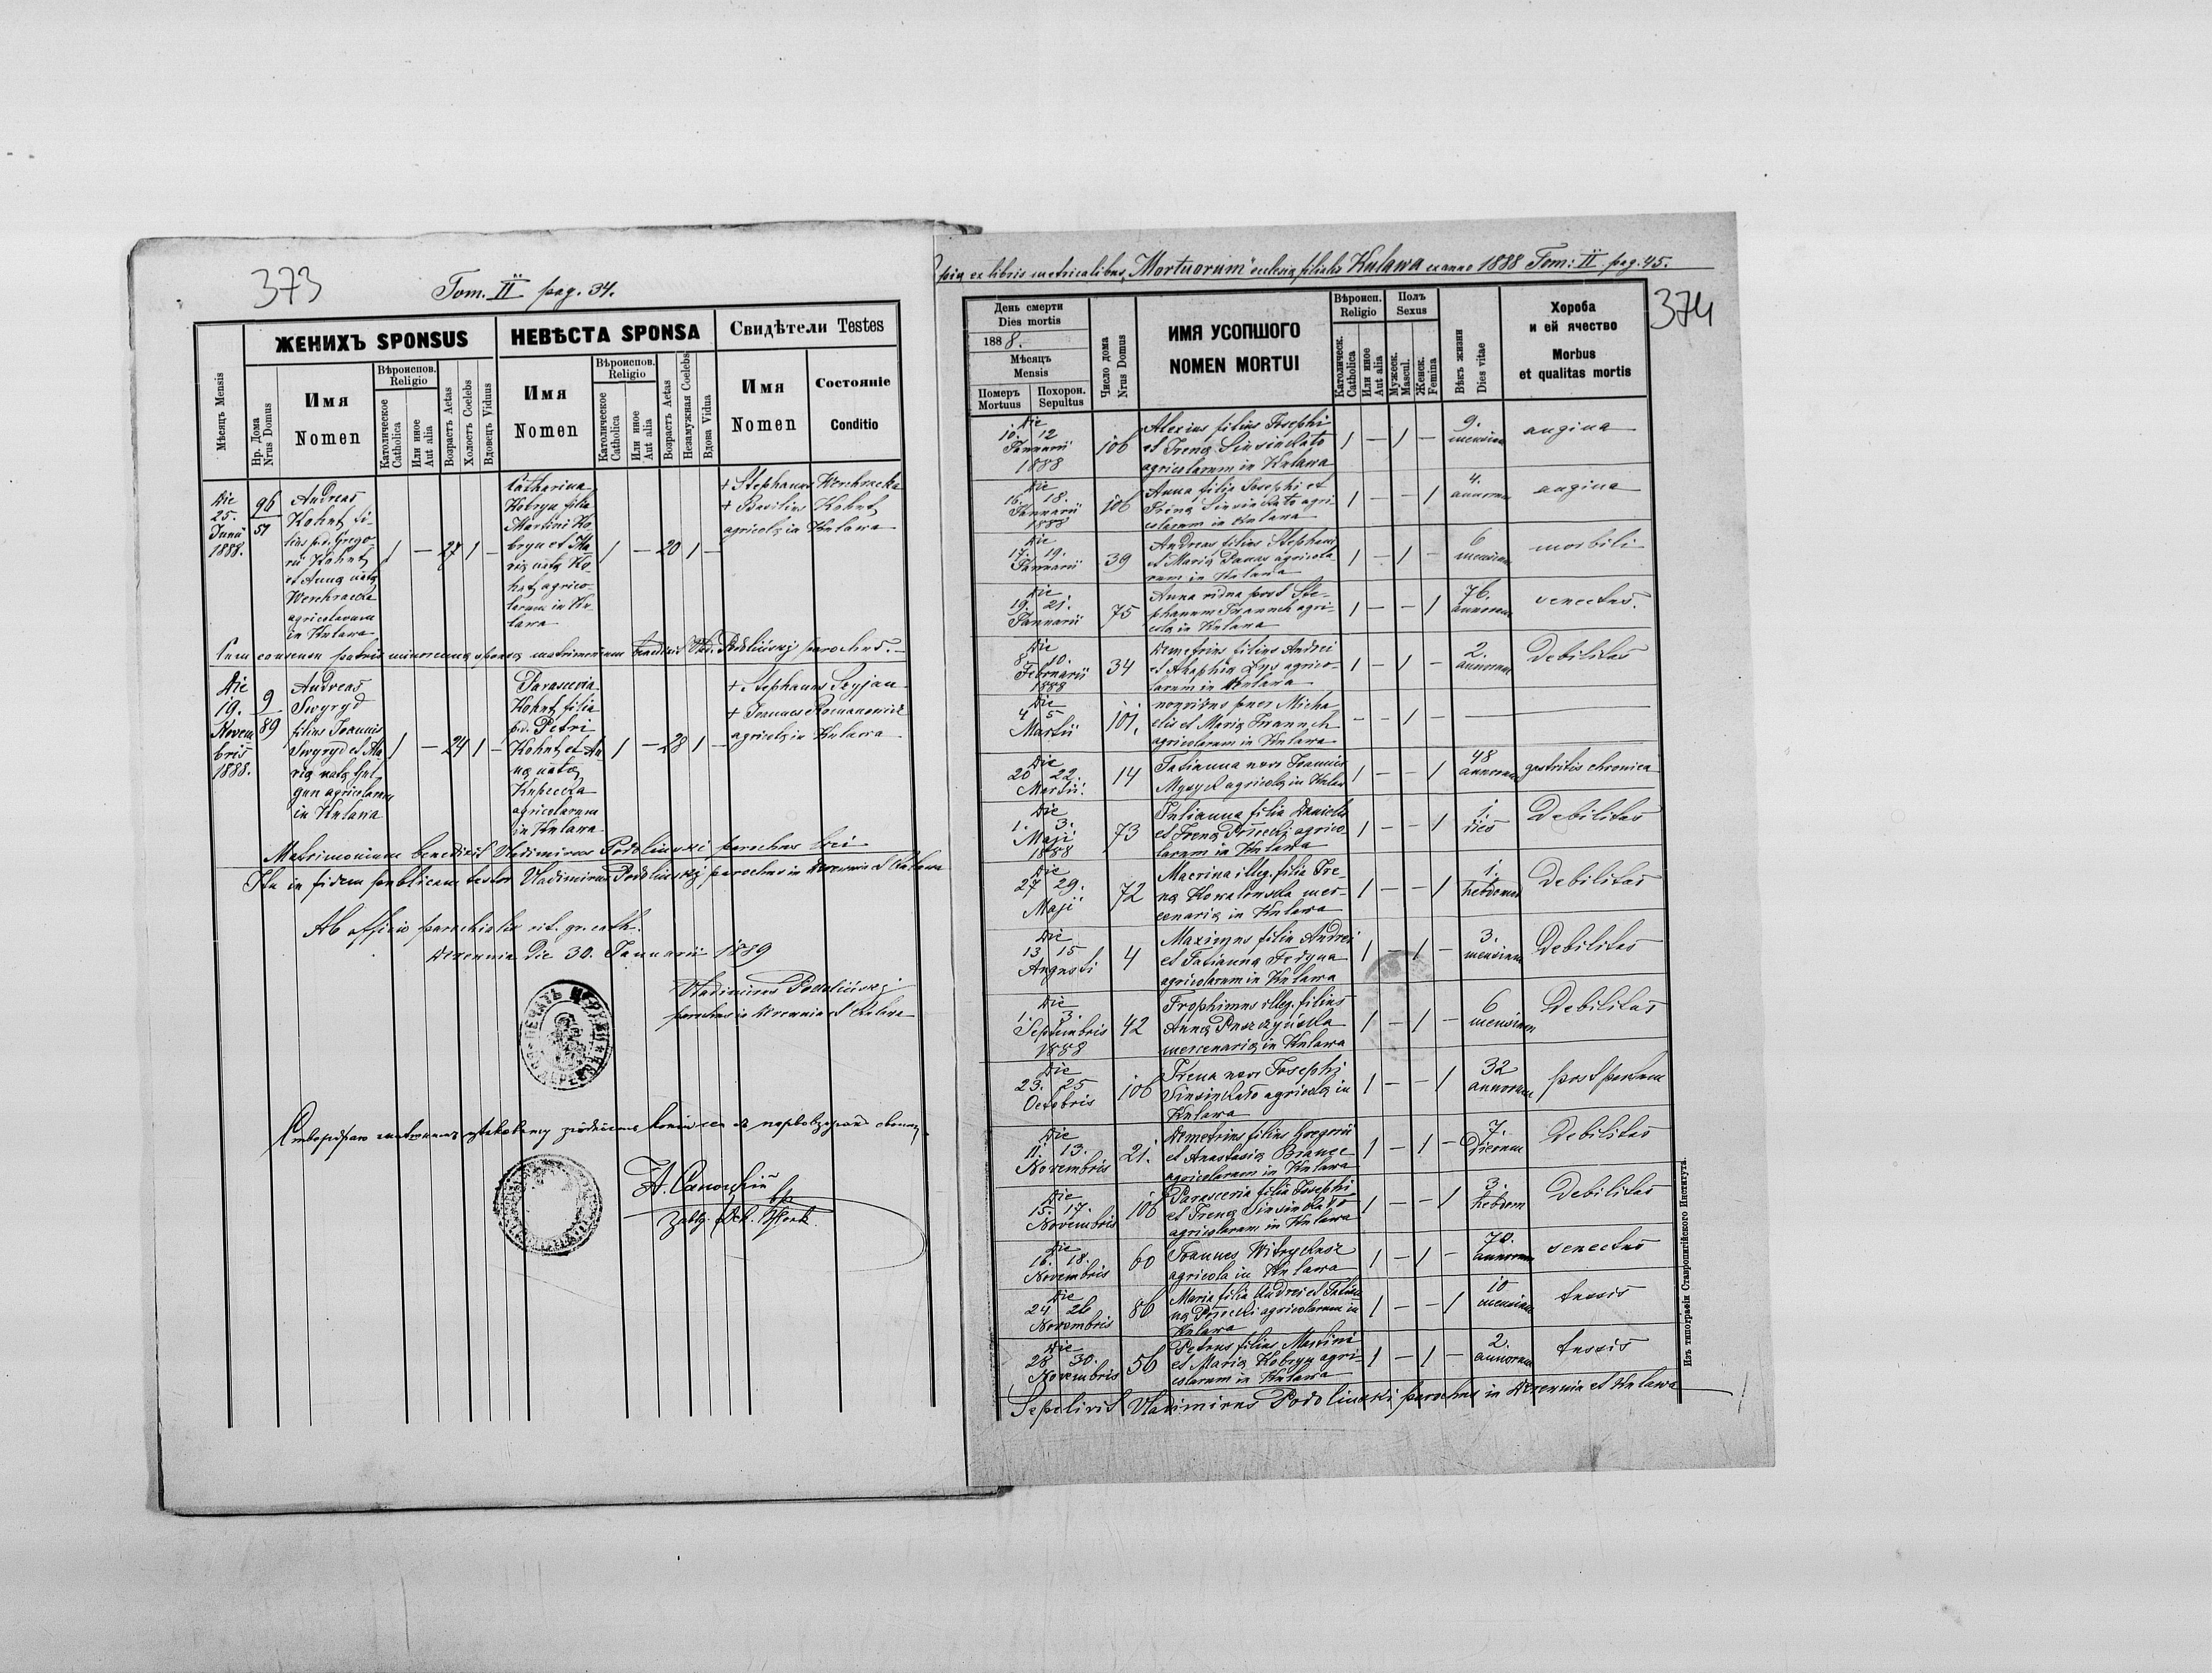 373
Tom. II pag. 34.
ЖЕНИХЪ SPONSUS
НЕВѢСТА SPONSA
Свидѣтели Testes
Мѣсяцъ Mensis
Нр. Дома Nrus Domus
Имя Nomen
Вѣроиспов. Religio
Католическое Catholica
Или иное Aut alia
Возрастъ Aetas
Холостъ Coelebs
Вдовецъ Viduus
Имя Nomen
Вѣроиспов. Religio
Католическое Catholica
Или иное Aut alia
Возрастъ Aetas
Незамужная Coelebs
Вдова Vidua
Имя Nomen
Состояніе Conditio
Die 25. Junii 1888.
96
51
Andreas
Kohut fi-
lius p.d. Grego
rii Kohut
et Anna nata
Werchracka
agricolarum
in Kulawa
1 — 27 1 —
Catharina
Kobryn filia
Martini Ko
bryn et Ma
ria nata Ko-
hut agrico-
larum in Ku-
lawa
1 — 20 1 —
+ Stephanus Werchracka
+ Basilius Kohut
agricola in Kulawa
Cum consensu patris minorenna sponsa matrimonium benedixit Vlad. Podoliński parochus.
Die 19. Novem bris 1888.
9
89
Andreas
Swyryd
filius Joannis
Swyryd et Ma
ria nata
agricolarum
in Kulawa
1 — 24 1 —
Parascevia
Kohut filia
p.d. Petri
Kohut et An
na nata
agricolarum
in Kulawa
1 — 28 1 —
+ Stephanus Szyjan
+ Joannes Romanowicz
agricola in Kulawa
Matrimonium benedixit Vladimirus Podoliński parochus loci
Ita in fidem publicam testor Vladimirus Podoliński parochus in Derewnia et Kulawa
Ab officio parochiali rit. gr. cath.
Derewnia Die 30. Januarii 1889
Vladimirus Podoliński
parochus in Derewnia et Kulawa
ex libris metricalibus „Mortuorum" ecclesia filialis Kulawa ex anno 1888 Tom: II pag. 45.
374
День смерти Dies mortis
1888.
Мѣсяцъ Mensis
Померъ Mortuus
Похорон. Sepultus
Число дома Nrus Domus
ИМЯ УСОПШОГО
NOMEN MORTUI
Вѣроисп. Religio
Католическ. Catholica
Или иное Aut alia
Полъ Sexus
Мужеск. Mascul.
Женск. Femina
Вѣкъ жизни Dies vitae
Хороба и ей ячество
Morbus et qualitas mortis
Die 10. 12 Januarii 1888
106
Alexius filius Josephi
et Irena Sinsinkato
agricolarum in Kulawa
1 — 1 —
9. mensium
angina
Die 16. 18. Januarii 1888
106
Anna filia Josephi et
Irena Sinsinkato agri-
colarum in Kulawa
1 — — 1
4. annorum
angina
Die 17. 19. Januarii
39
Andreas filius Stephani
et Maria Panas agricola-
rum in Kulawa
1 — 1 —
6 mensium
morbili
Die 19. 21. Januarii
75
Anna vidua post Ste-
phanum Iwanneh agri-
cola in Kulawa
1 — — 1
76. annorum
senectus.
Die 8. 10. Februarii 1888
34
Demetrius filius Andrei
et Ahaphia Lys agrico-
larum in Kulawa
1 — 1 —
2. annorum
Debilitas
Die 4 5 Martii
101.
nonvivus puer Micha
elis et Maria Iwanneh
agricolarum in Kulawa
— — 1 — —
Die 20 22. Martii.
14
Tatianna uxor Joannis
agricola in Kulaw
1 — — 1
48 annorum
gastritis chronica
Die 1. 3. Maji 1888
73
Julianna filia Danielis
et Irena agrico-
larum in Kulawa
1 — — 1
1. dies
Debilitas
Die 27 29. Maji
72
Macrina illeg. filia Ire-
na Kowalewska mer-
cenaria in Kulawa
1 — — 1
1. hebdomas
Debilitas
Die 13 15 Augusti
4
Maximus filius Andrei
et Tatianna Fedyna
agricolarum in Kulawa
1 — 1 —
3. mensium
Debilitas
Die 1. 3. Septembris 1888
42
Trophimus illeg. filius
Anna Puszczyńska
mercenaria in Kulawa
1 — 1 —
6 mensium
Debilitas
Die 23. 25 Octobris
106
Irena uxor Josephi
Sinsinkato agricola in
Kulawa
1 — — 1
32 annorum
post partum
Die 11. 13. Novembris
21.
Demetrius filius Gregorii
et Anastasia
agricolarum in Kulawa
1 — 1 —
7. Dierum
Debilitas
Die 15. 17. Novembris
106
Parascevia filia Josephi
et Irena Sinsinkato
agricolarum in Kulawa
1 — — 1
3. hebdom
Debilitas
Die 16. 18. Novembris
60
Joannes
agricola in Kulawa
1 — 1 —
70. annorum
senectus
Die 24 26 Novembris
86
Maria filia Andrei et Tatian
na agricolarum in
Kulawa
1 — — 1
10 mensium
tussis
Die 28 30. Novembris
56
Petrus filius Martini
et Maria Kobryn agri-
colarum in Kulawa
1 — 1 —
2. annorum
tussis
Sepelivit Vladimirus Podoliński parochus in Derewnia et Kulawa
Изъ типографіи Ставропигійского Института.